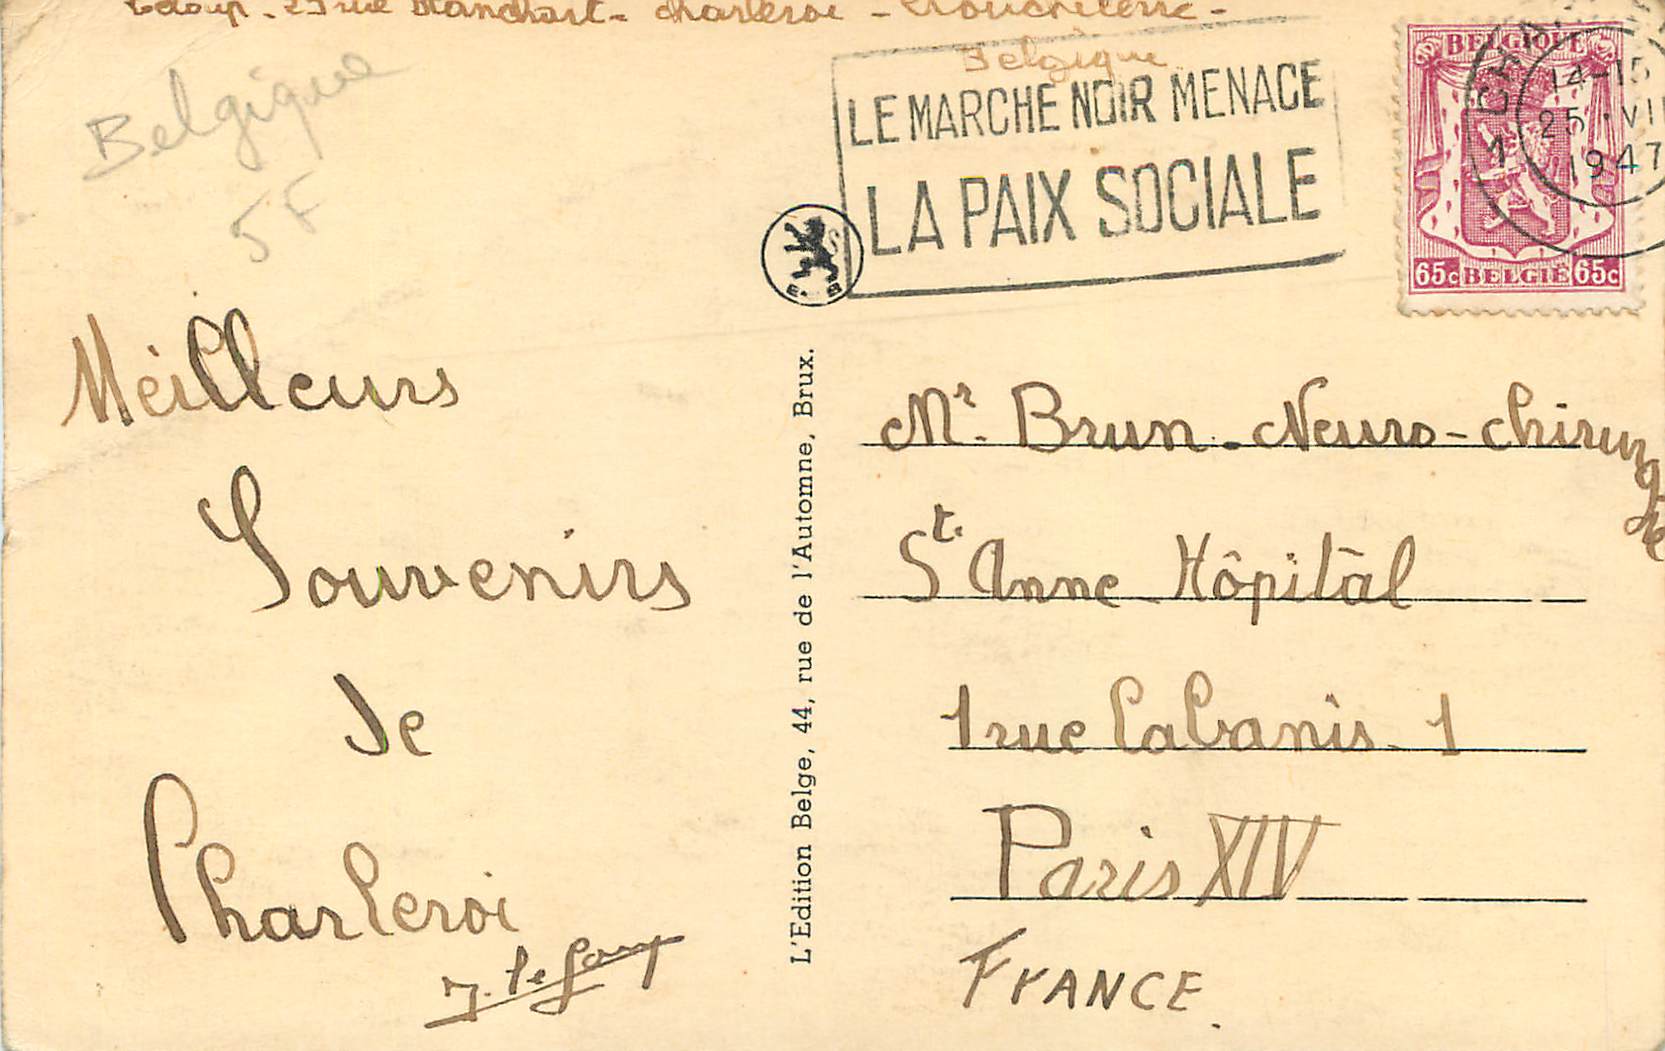 Leloup - 25 rue Blanchart - Charleroi -
Belgique
Belgique
5F
LE MARCHE NOIR MENACE
LA PAIX SOCIALE
BELGIQUE
65c BELGIË 65c
1 CHAR
14-15
25 · VII
1947
E B
Meilleurs
Souvenirs
de
Charleroi
L'Edition Belge, 44, rue de l'Automne, Brux.
Mr. Brun - Neuro-chirurgie
St. Anne Hôpital
1 rue Cabanis 1
Paris XIV
FRANCE.